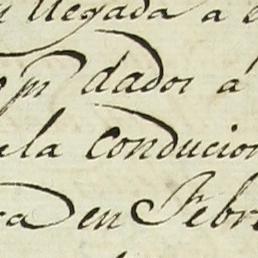 llegada a
pr dados á
la conducion
en Febre